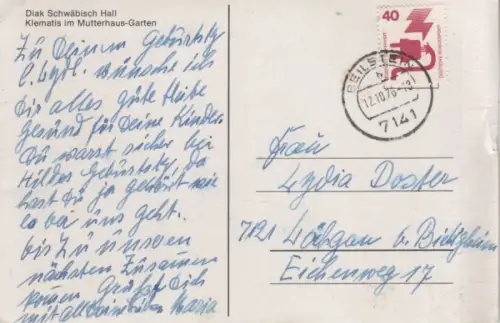 Diak Schwäbisch Hall
Klematis im Mutterhaus-Garten
Zu Deinem Geburtstg
l. Lydl. wünsche ich
Dir alles gute bleibe
Gesund für Deine Kinder
Du warst sicher bei
Hildes Geburtstg, da
hast Du ja gehört wie
es bei uns geht.
bis zu unsren
nächsten Zusamen
kommen Grüßt Dich
mit Maria
40
DEUTSCHE BUNDESPOST
BEILSTEIN
12.10.76
7141
Frau
Lydia Doster
7121 Löchgau b. Bietigheim
Eichenweg 17